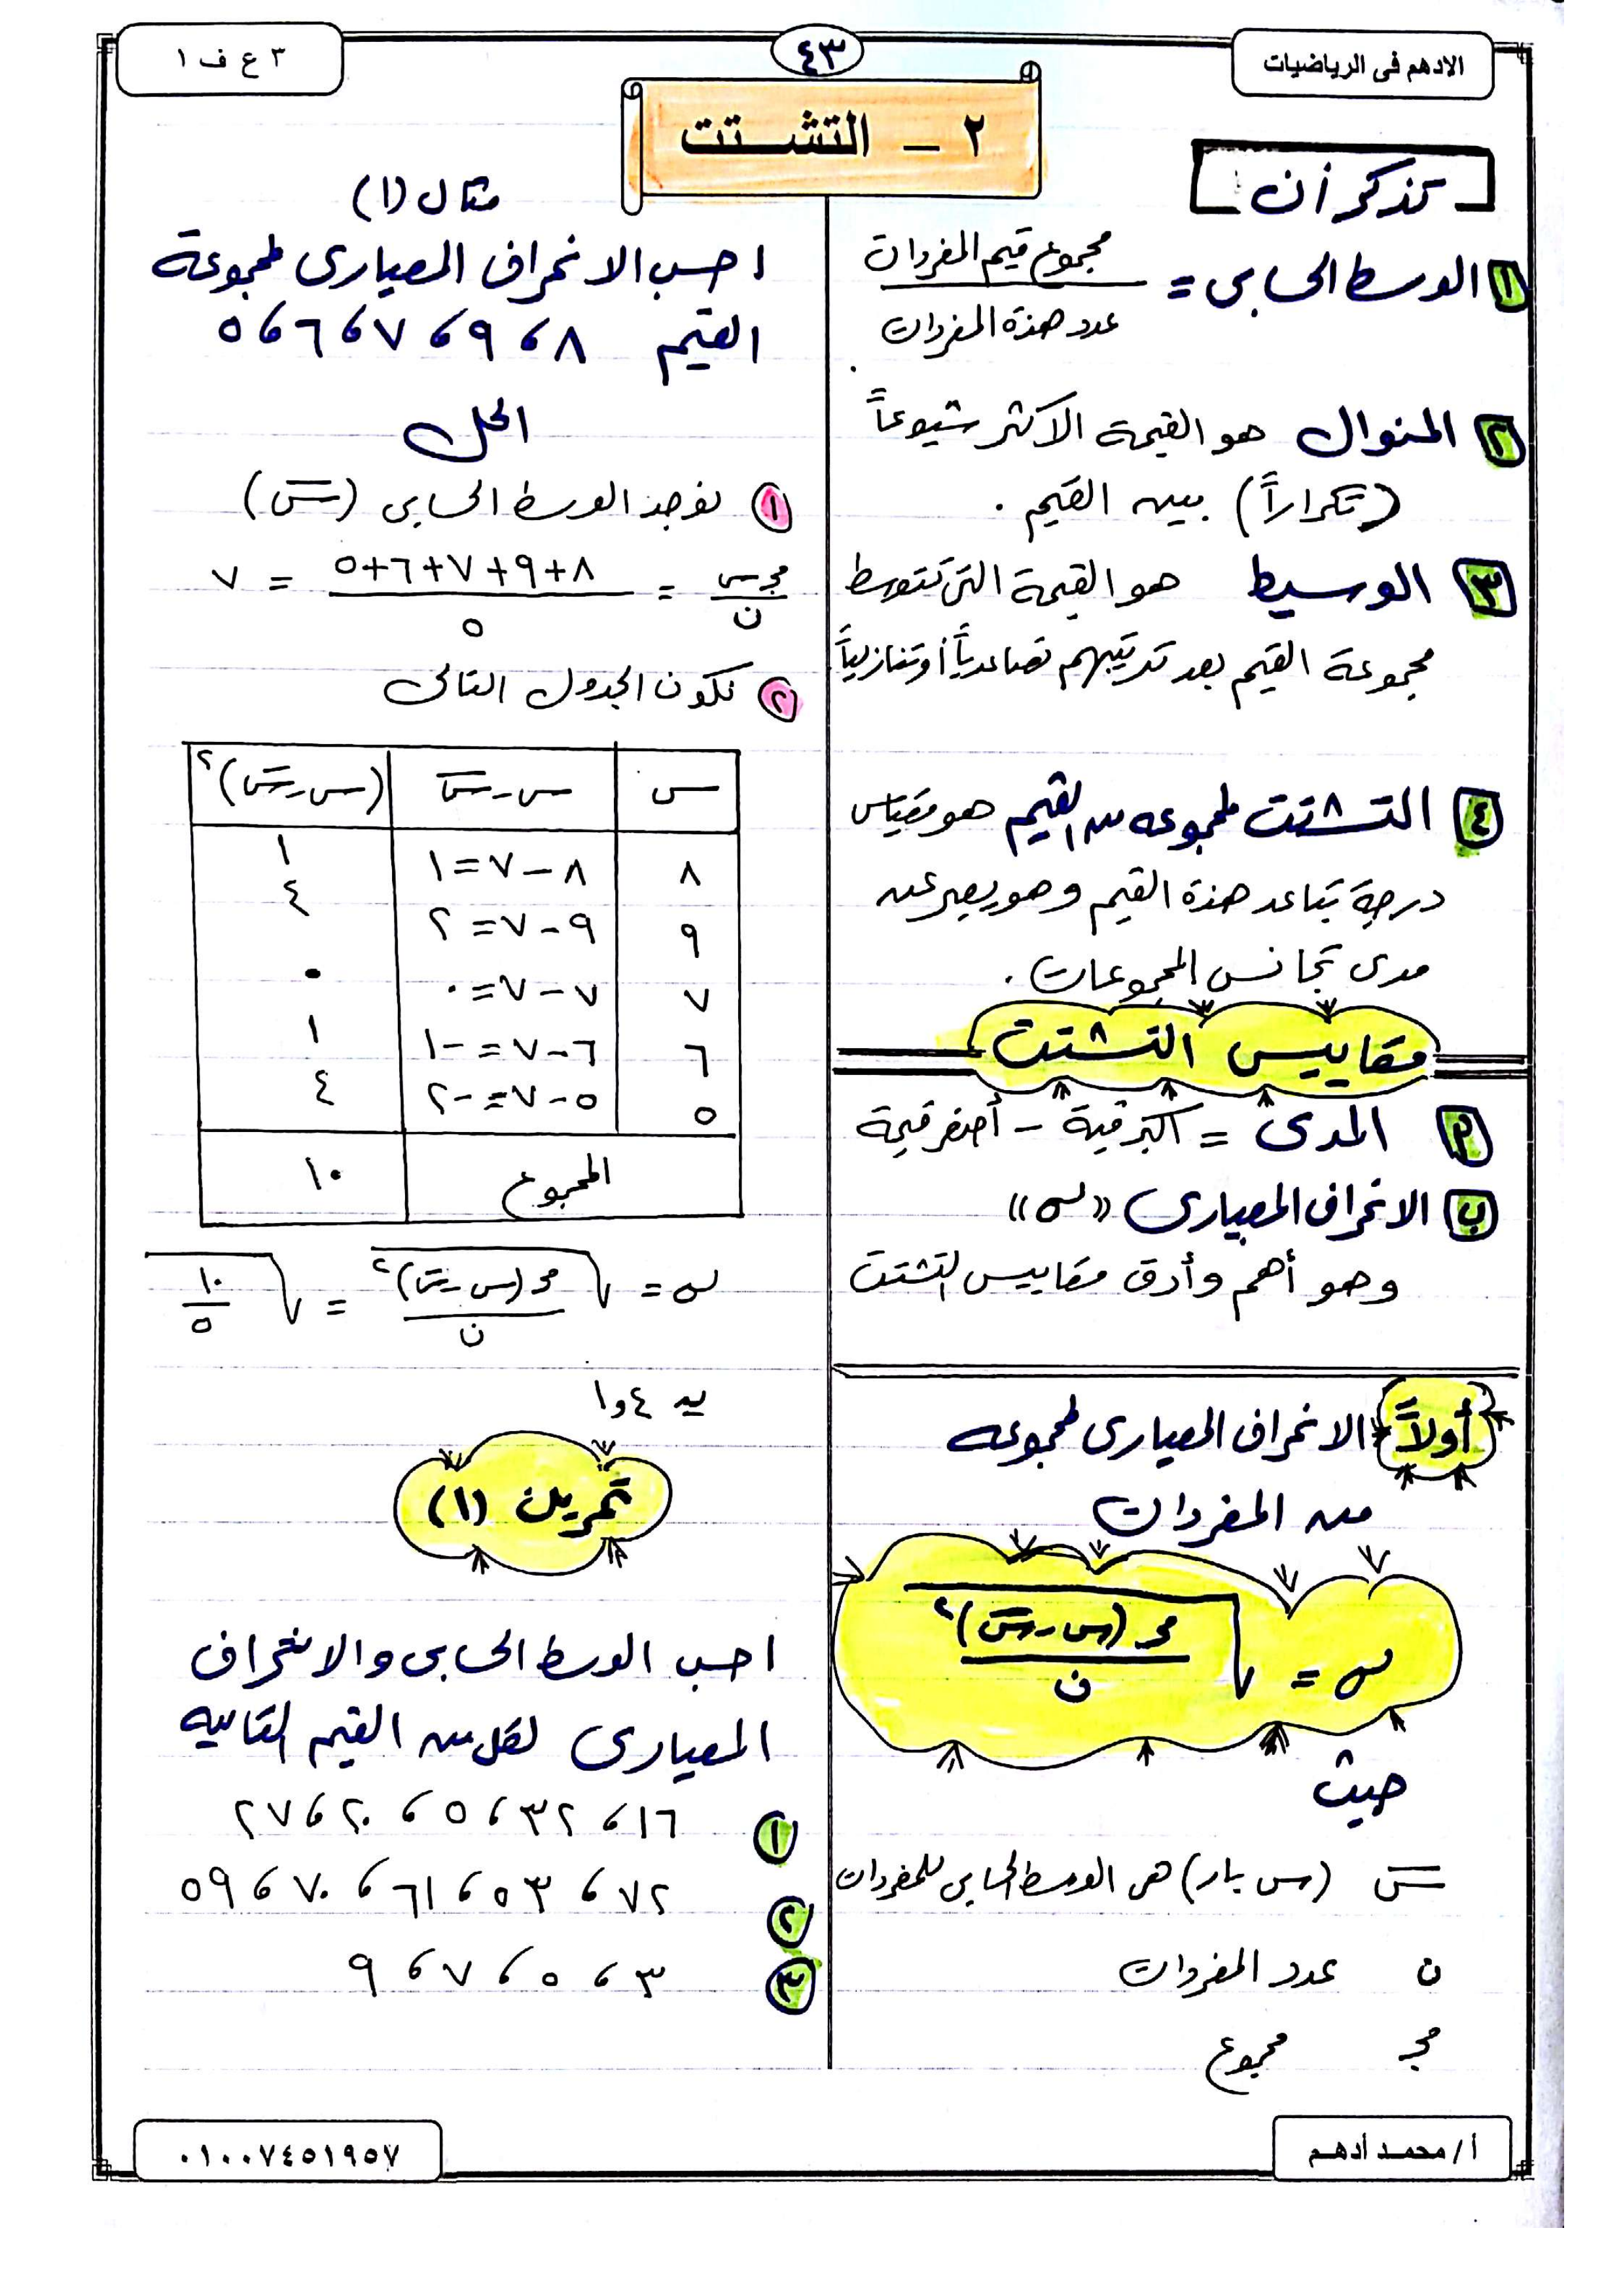 الادهم فى الرياضيات
٤٣
٣ ع ف ١
٢ – التشتت
تذكر أن
١ الوسط الحسابى = مجموع قيم المفردات / عدد هذة المفردات
٢ المنوال هو القيمة الأكثر شيوعاً
(تكراراً) بين القيم .
٣ الوسيط هو القيمة التى تتوسط
مجموعة القيم بعد ترتيبهم تصاعدياً أو تنازلياً
٤ التشتت لمجموعه من القيم هو مقياس
درجة تباعد هذة القيم وهو يعبر عن
مدى تجانس المجموعات .
مقاييس التشتت
٩ المدى = أكبر قيمة – أصغر قيمة
ب الانحراف المعيارى «σ»
وهو أهم وأدق مقاييس التشتت
أولاً الانحراف المعيارى لمجموعه
من المفردات
σ = √(مجـ (س – س̅)٢ / ن)
حيث
س̅ (س بار) هى الوسط الحسابى للمفردات
ن عدد المفردات
مجـ مجموع
مثال (١)
احسب الانحراف المعيارى لمجموعة
القيم ٨ ، ٩ ، ٧ ، ٦ ، ٥
الحل
١ نوجد الوسط الحسابى (س̅)
مجـ س / ن = ٨+٩+٧+٦+٥ / ٥ = ٧
٢ نكون الجدول التالى
س | س – س̅ | (س – س̅)٢
٨ | ٨ – ٧ = ١ | ١
٩ | ٩ – ٧ = ٢ | ٤
٧ | ٧ – ٧ = ٠ | ٠
٦ | ٦ – ٧ = -١ | ١
٥ | ٥ – ٧ = -٢ | ٤
المجموع | ١٠
σ = √(مجـ (س – س̅)٢ / ن) = √(١٠ / ٥)
≃ ١,٤
تمرين (١)
احسب الوسط الحسابى والانحراف
المعيارى لكل من القيم التاليه
١ ١٦ ، ٣٢ ، ٥ ، ٢٠ ، ٢٧
٢ ٧٢ ، ٥٣ ، ٦١ ، ٧٠ ، ٥٩
٣ ٣ ، ٥ ، ٧ ، ٩
أ / محمد أدهم
٠١٠٠٧٤٥١٩٥٧